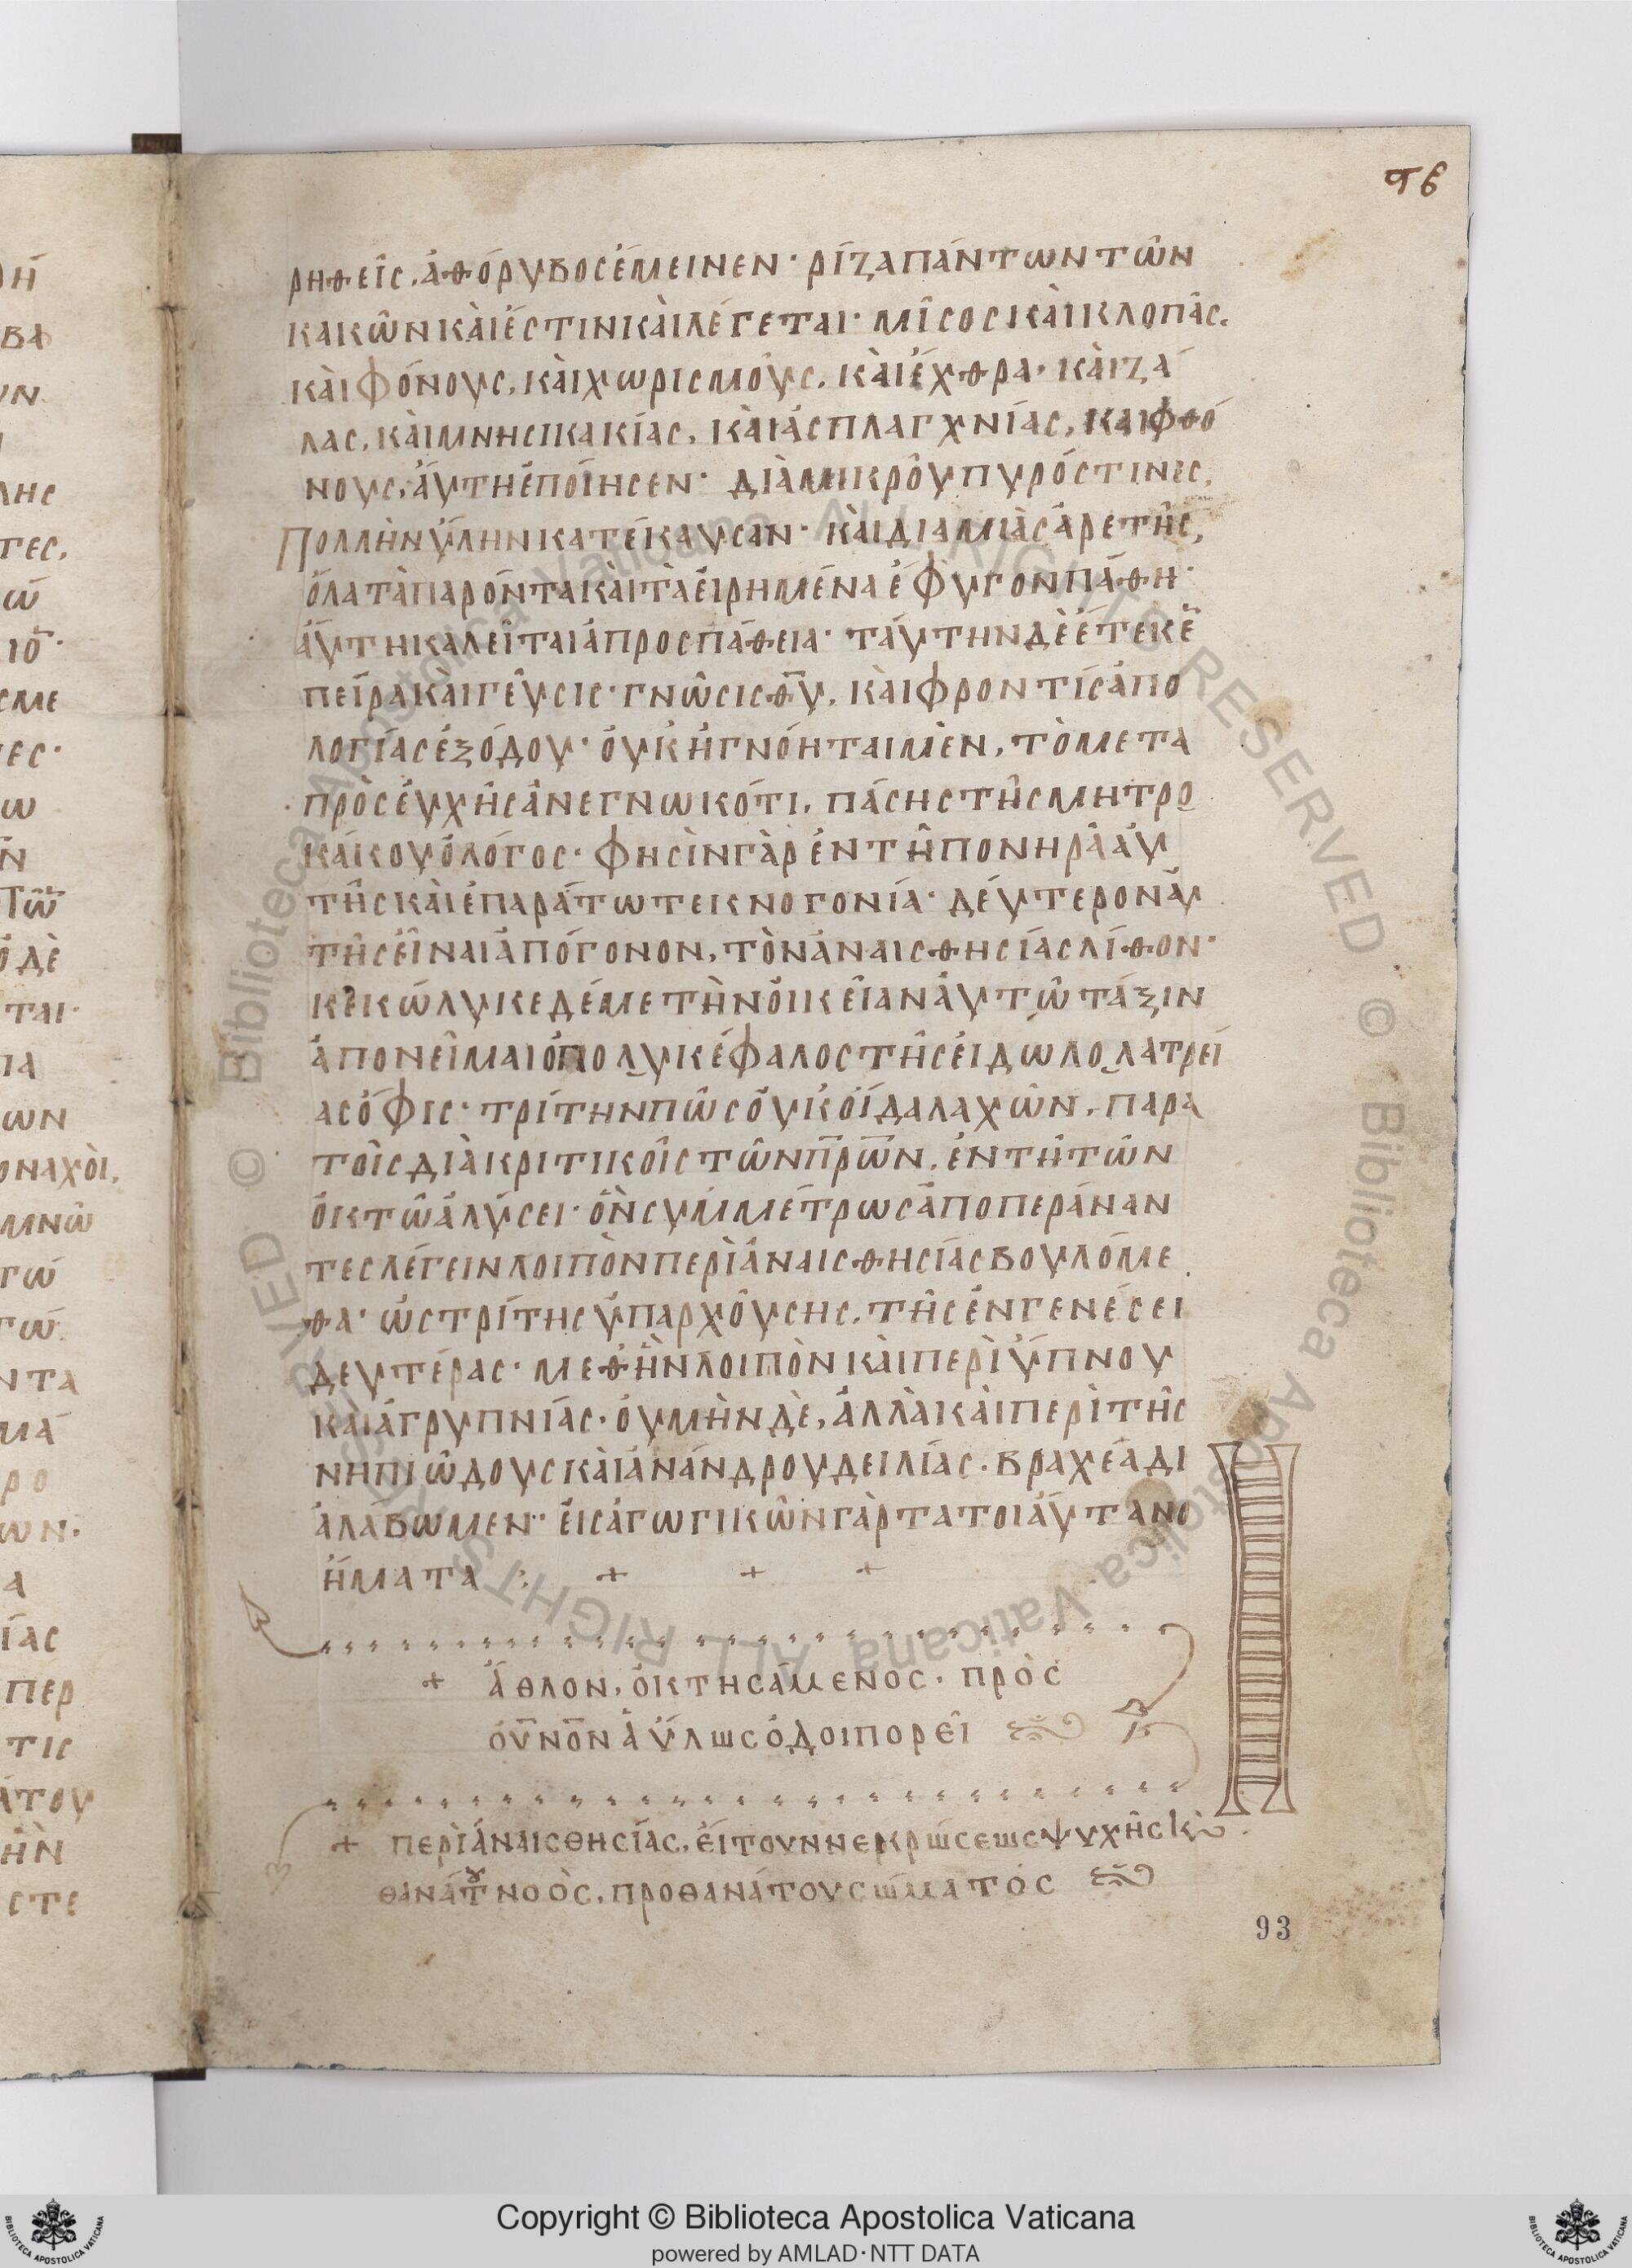 ϟϛ
ρηθεῖς, ἀθόρυβος ἔμεινεν· ρίζα πάντων τῶν
κακῶν καὶ ἔστιν καὶ λέγεται· μῖσος καὶ κλοπὰς,
καὶ φόνους, καὶ χωρισμοὺς, καὶ ἔχθρα· καὶ ζά
λας, καὶ μνησικακίας, καὶ ἀσπλαγχνίας, καὶ φθό
νους, ἀύτη ἐποίησεν· διὰ μικροῦ πυρός τινες,
Πολλὴν ὕλην κατέκαυσαν· καὶ δια μιὰς ἀρετῆς,
ὅλα τὰ παρόντα καὶ τὰ ἐιρημένα ἔφυγον πάθη·
ἁύτη καλεῖται ἀπροσπάθεια· ταύτην δὲ ἔτεκε
πεῖρα καὶ γεῦσις· γνῶσις θυ, καὶ φροντίς ἀπο
λογίας ἐξόδου· ὀυκ ἠγνόηται μὲν, τὸ μετα
πρὸσευχῆς ἀνεγνωκότι, πάσης τῆς μητρο
κάκου ὁ λόγος· φησὶν γὰρ ἐν τῆ πονηρᾶ ἀυ
τῆς καὶ ἐπαράτω τεκνογονία· δέυτερον ἀυ
τῆς εἶναι ἀπόγονον, τὸν ἀναισθησίας λίθον·
κεκώλυκε δέ με τὴν ὀικεῖαν ἀυτῶ τάξιν
ἀπονεῖμαι ὁ πολυκέφαλος τῆς ἐιδωλολατρεί
ας ὄφις· τρίτην πῶς ὀυκ ὀῖδα λαχῶν, παρα
τοῖς διὰκριτικοῖς τῶν πρων, ἐν τῆ τῶν
ὀκτῶ ἁλύσει· ὃν συμμέτρως ἀποπεράναν
τες λέγειν λοιπὸν περὶ ἀναισθησίας βουλόμε
θα· ὡς τρίτης ὑπαρχούσης, τῆς ἐν γενέσει
δευτέρας· μεθ ἣν λοιπὸν καὶ περὶ ὕπνου
καὶ ἀγρυπνίας· ὀυ μὴν δὲ, ἀλλὰ καὶ περὶ τῆς
νηπιώδους καὶ ἀνάνδρου δειλίας· βραχέα δι
ἀλάβωμεν· ἐισἀγωγικῶν γὰρ τα τοιἀύτα νο
ήματα :· + + +
+ ἆθλον, ὁ κτησάμενος· πρὸς
ουνον ἀΰλως ὁδοιπορεῖ
+ περὶ ἀναισθησίας, ἐίτουν νεκρώσεως ψυχῆς κὸ
θανάτου νοὸς, προ θανάτου σώματος
93